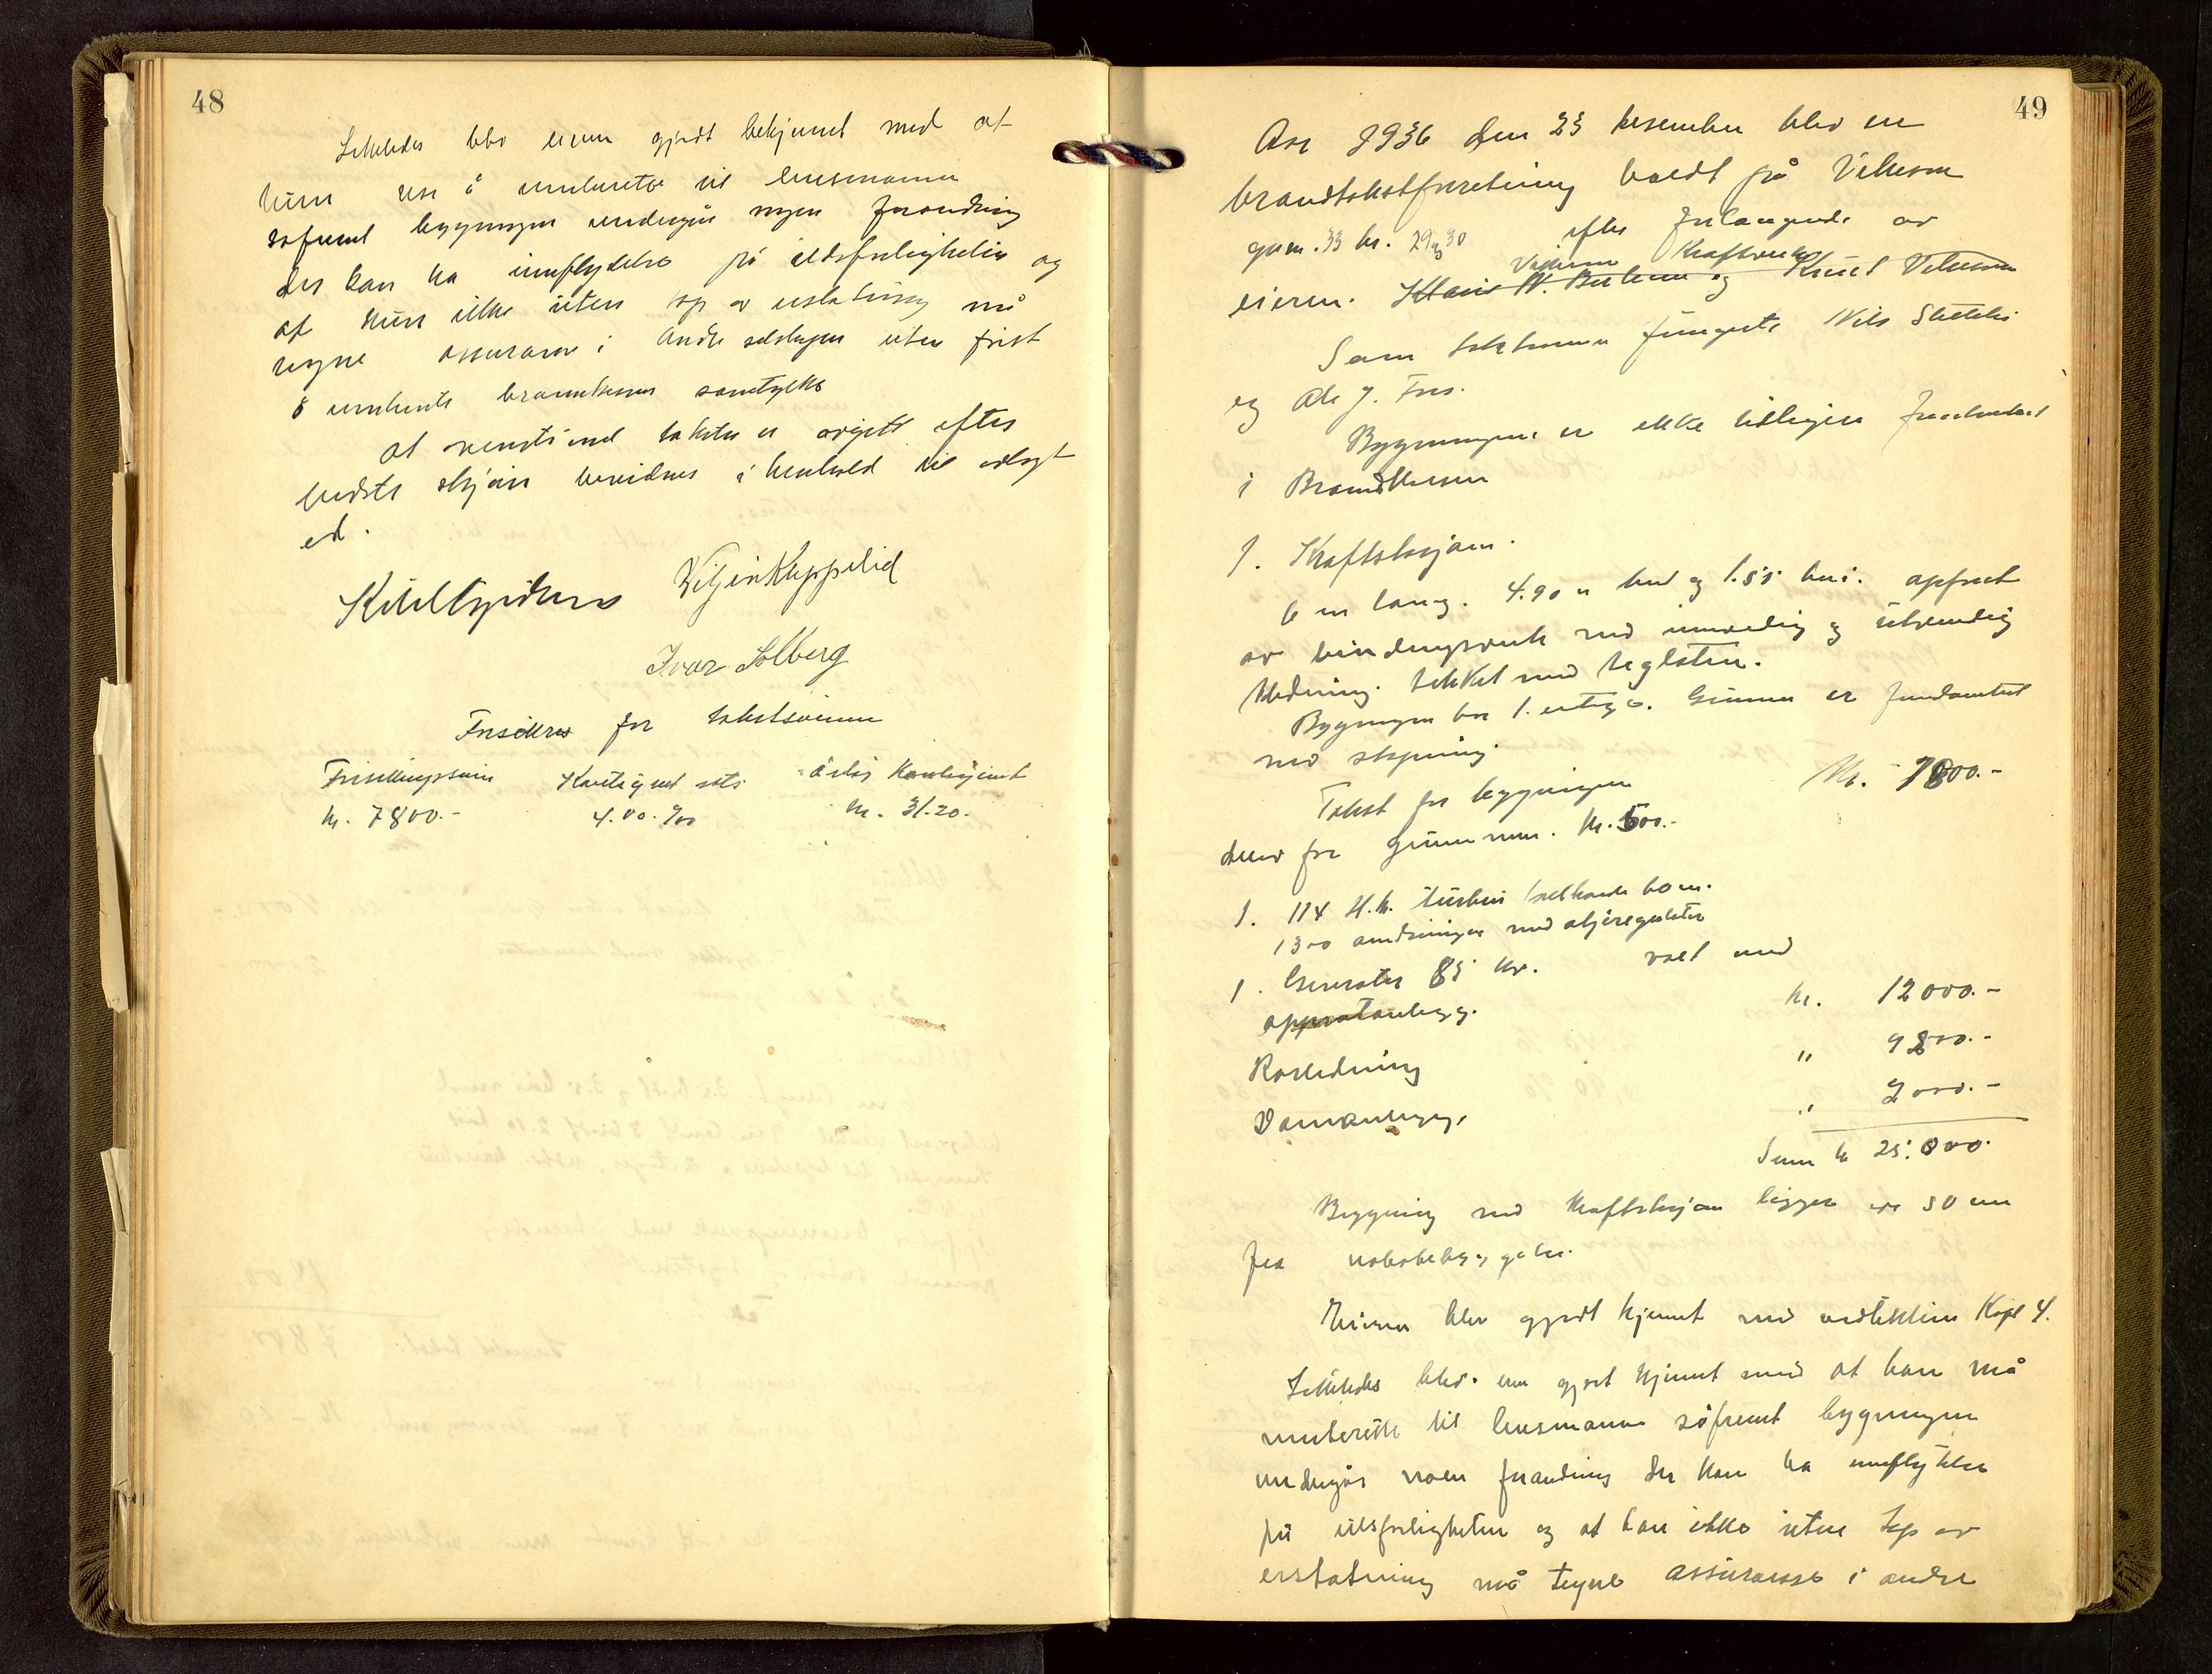 48
Likeledes blev eieren gjordt bekjennt med at
hun har å innberette til lensmannen
såfremt bygningen undergår nogen forandring
der kan ha innflydelse på ildsfarligheten og
at hun ikke uten tap av erstatning må
tegne assuranse i andre selskaper uten först
å innhente brannkassens samtykke
At ovenstående takster er avgitt efter
bedste skjönn bevidnes i henhold til avlagt
ed.
Ivar Solberg
Forsikres for takstsummen
Forsikringssum Kontigent sats årlig Kontigent
kr. 7800.- 4.00 ‰ kr. 31.20.
49
Aar 1936 den 23 desember blev en
brandtakstforretning holdt på Vikesen
gnr. 33 br. 29 og 30 efter forlangende av
Kraftverk
eieren. og Knut
Som takstmenn fungerte Nils
og Ole J.
Bygningene er ikke tidligere
i Brandkassen
1. Kraftstasjon.
6 m lang. 4.90 m bred og 1.55 höi. opfört
av bindingsverk med innvendig og utvendig
kledning. tekket med teglsten.
Bygningen har 1. etage. Grunnen er fundamentert
med stöpning.
Takst for bygningen Kr. 1800.-
derav for grunnmur. Kr. 500.-
1. 114 H.K. turbin
1300 omdreininger med oljeregulator
1. Generator 85 volt med
apparatanlegg. kr. 12000.-
Rörledning " 9200.-
Damanlegg. " 2000.-
Sum kr 25.000.
Bygning med Kraftstasjon ligger 50 m
fra nabobebyggelse.
Eieren blev gjordt kjennt med vedtektene Kapt 4.
Likeledes blev gjort kjennt med at han må
innberette til lensmannen såfremt bygningen
undergår noen forandring der kan ha innflydelse
på ildsfarligheten og at han ikke uten tap av
erstatning må tegne assuranse i andre